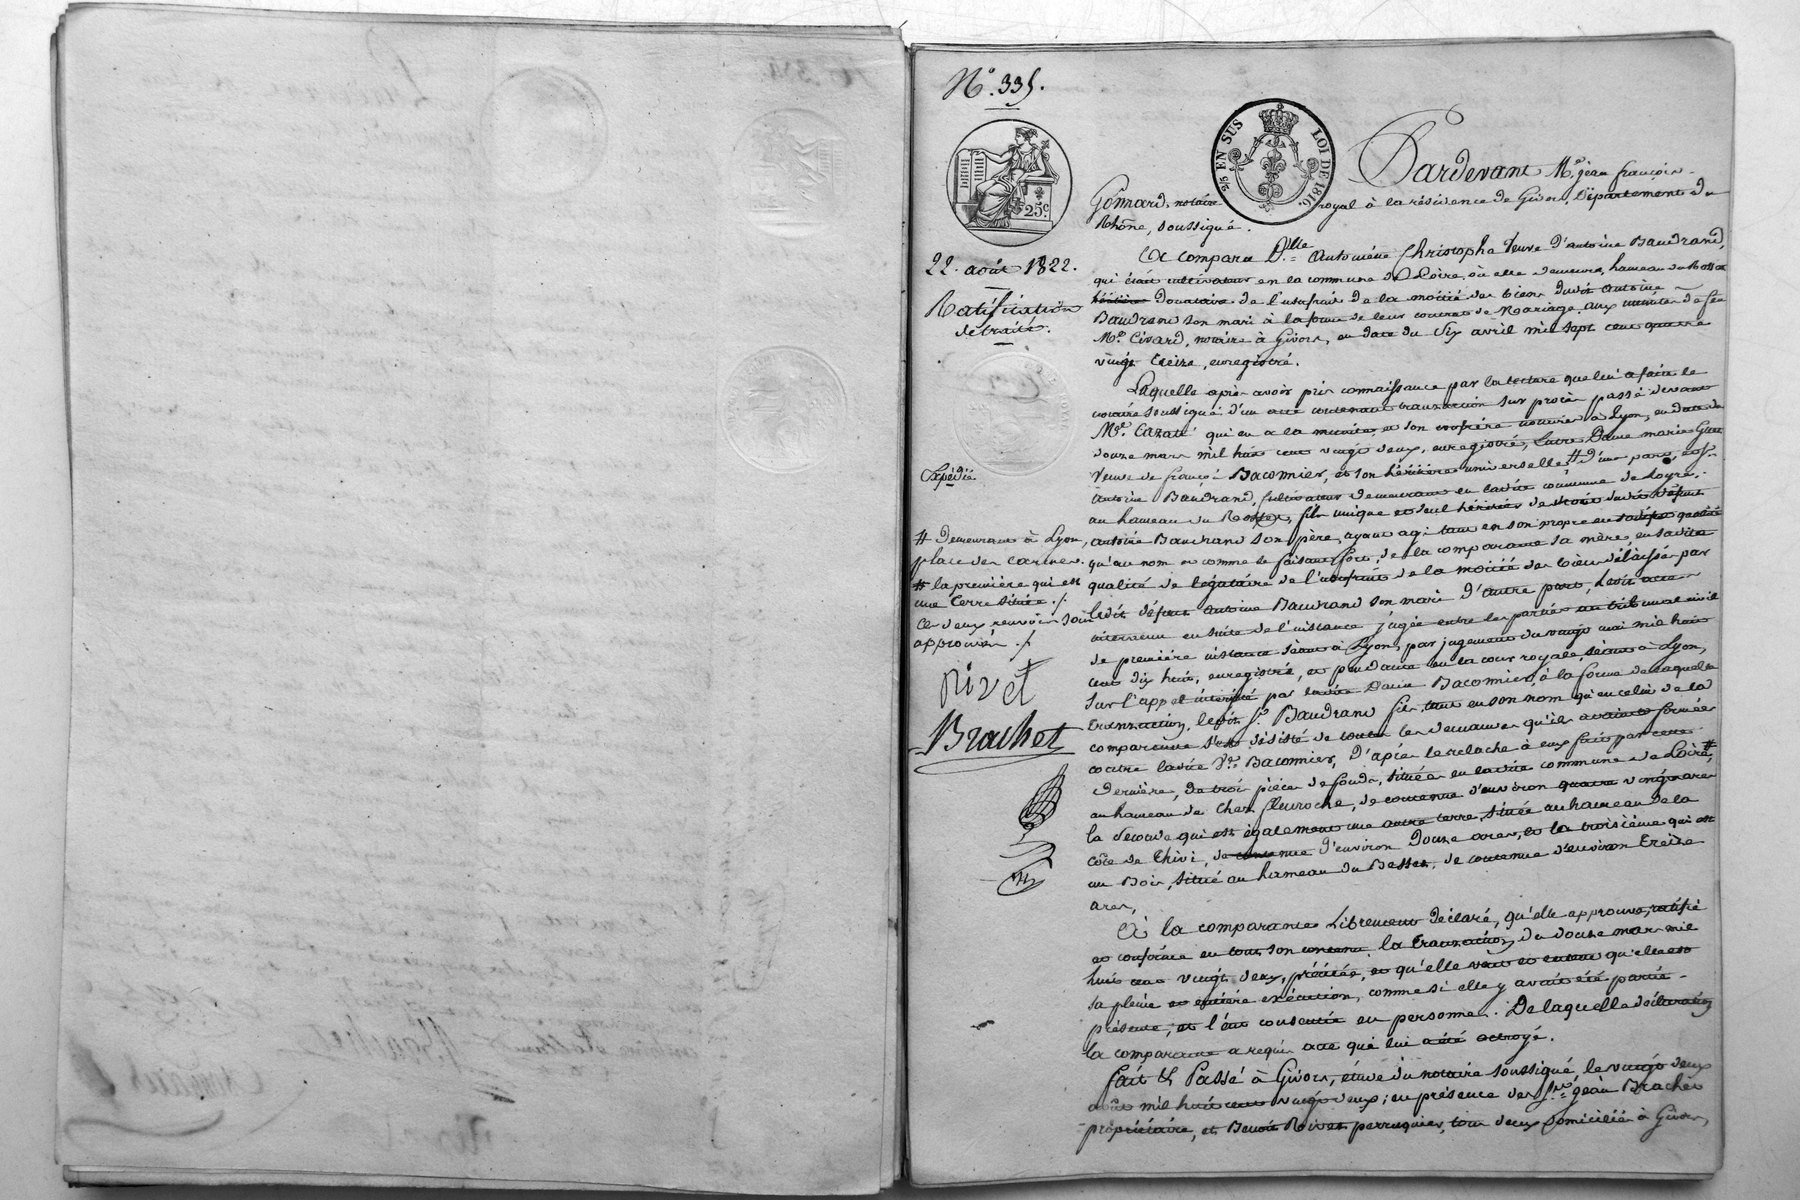 N° 335.
25c.
2/5 EN SUS LOI DE 1816.
22. août 1822.
Ratification
de traité.
Expédié.
# demeurant à Lyon,
place des carmes.
# la première qui est
une terre située ./.
Ces deux renvois sont
approuvés ./.
Rivet
Brachet
Pardevant Me. jean françois
Gonnard, notaire royal à la résidence de Givors, Département du
Rhône, soussigné.
A comparu D.lle Antoinette Christophe veuve d'antoine Baudrand,
qui était cultivateur en la commune de Loire, où elle demeure, hameau du
douataire de l'usufruit de la moitié des biens dudit Antoine
Baudrand son mari à la forme de leur contrat de Mariage aux minutes de feu
Me. Civard, notaire à Givors, en date du six avril mil sept cent quatre
vingt treize, enregistré.
Laquelle après avoir pris connaissance par la lecture que lui a fait le
notaire soussigné d'un acte contenant transaction sur procès passé devant
Me. Cazati qui en a la minute et son confrère notaires à Lyon, en date du
douze mars mil huit cent vingt deux, enregistré, Entre Dame marie
veuve de françois Bacomier, et son héritière universelle # d'une part, et Sr.
Antoine Baudrand, cultivateur demeurant en ladite commune de Loyre,
au hameau du fils unique et seul héritier de droit dudit défunt
antoine Baudrand son père, ayant agi tant en son propre en sadite qualité
qu'au nom et comme se faisant fort, de la comparante sa mère, en sadite
qualité de légataire de l'usufruit de la moitié des biens délaissés par
ledit défunt Antoine Baudrand son mari d'autre part, Ledit acte
intervenu en suite de l'instance jugée entre les parties au tribunal civil
de première instance séant à Lyon, par jugement du vingt mai mil huit
cent dix huit, enregistré, et pendante en la cour royale, séante à Lyon,
sur l'appel interjetté par ladite Dame Bacomier, à la forme de laquelle
transaction, ledit Sr. Baudrand fils, tant en son nom qu'en celui de la
comparante s'est désisté de toutes les demandes qu'ils avaient formées
contre ladite Ve. Bacomier, d'après le relache à eux fait par cette
dernière, de trois pièces de fonds, situées en ladite commune de Loire #
au hameau de Chez fleuroche, de contenue d'environ quatre vingt ares
la seconde qui est également une autre terre, située au hameau de la
côte de Thivi, de contenue d'environ douze ares, et la troisième qui est
un Bois, situé au hameau du Besset, de contenue d'environ treize
ares,
A la comparante Librement déclaré, qu'elle approuve, ratifie
et confirme en tout son contenu la transaction du douze mars mil
huit cent vingt deux, précitée, et qu'elle veut et entend qu'elle ait
sa pleine et entière exécution, comme si elle y avait été partie
présente, et l'eut consentie en personne. De laquelle déclaration
la comparante a requis acte qui lui a été octroyé.
fait & Passé à Givors, étude du notaire soussigné, le vingt deux
août mil huit cent vingt deux; en présence des Srs. jean Brachet
propriétaire, et Benoit Rivet perruquier, tous deux domiciliés à Givors,